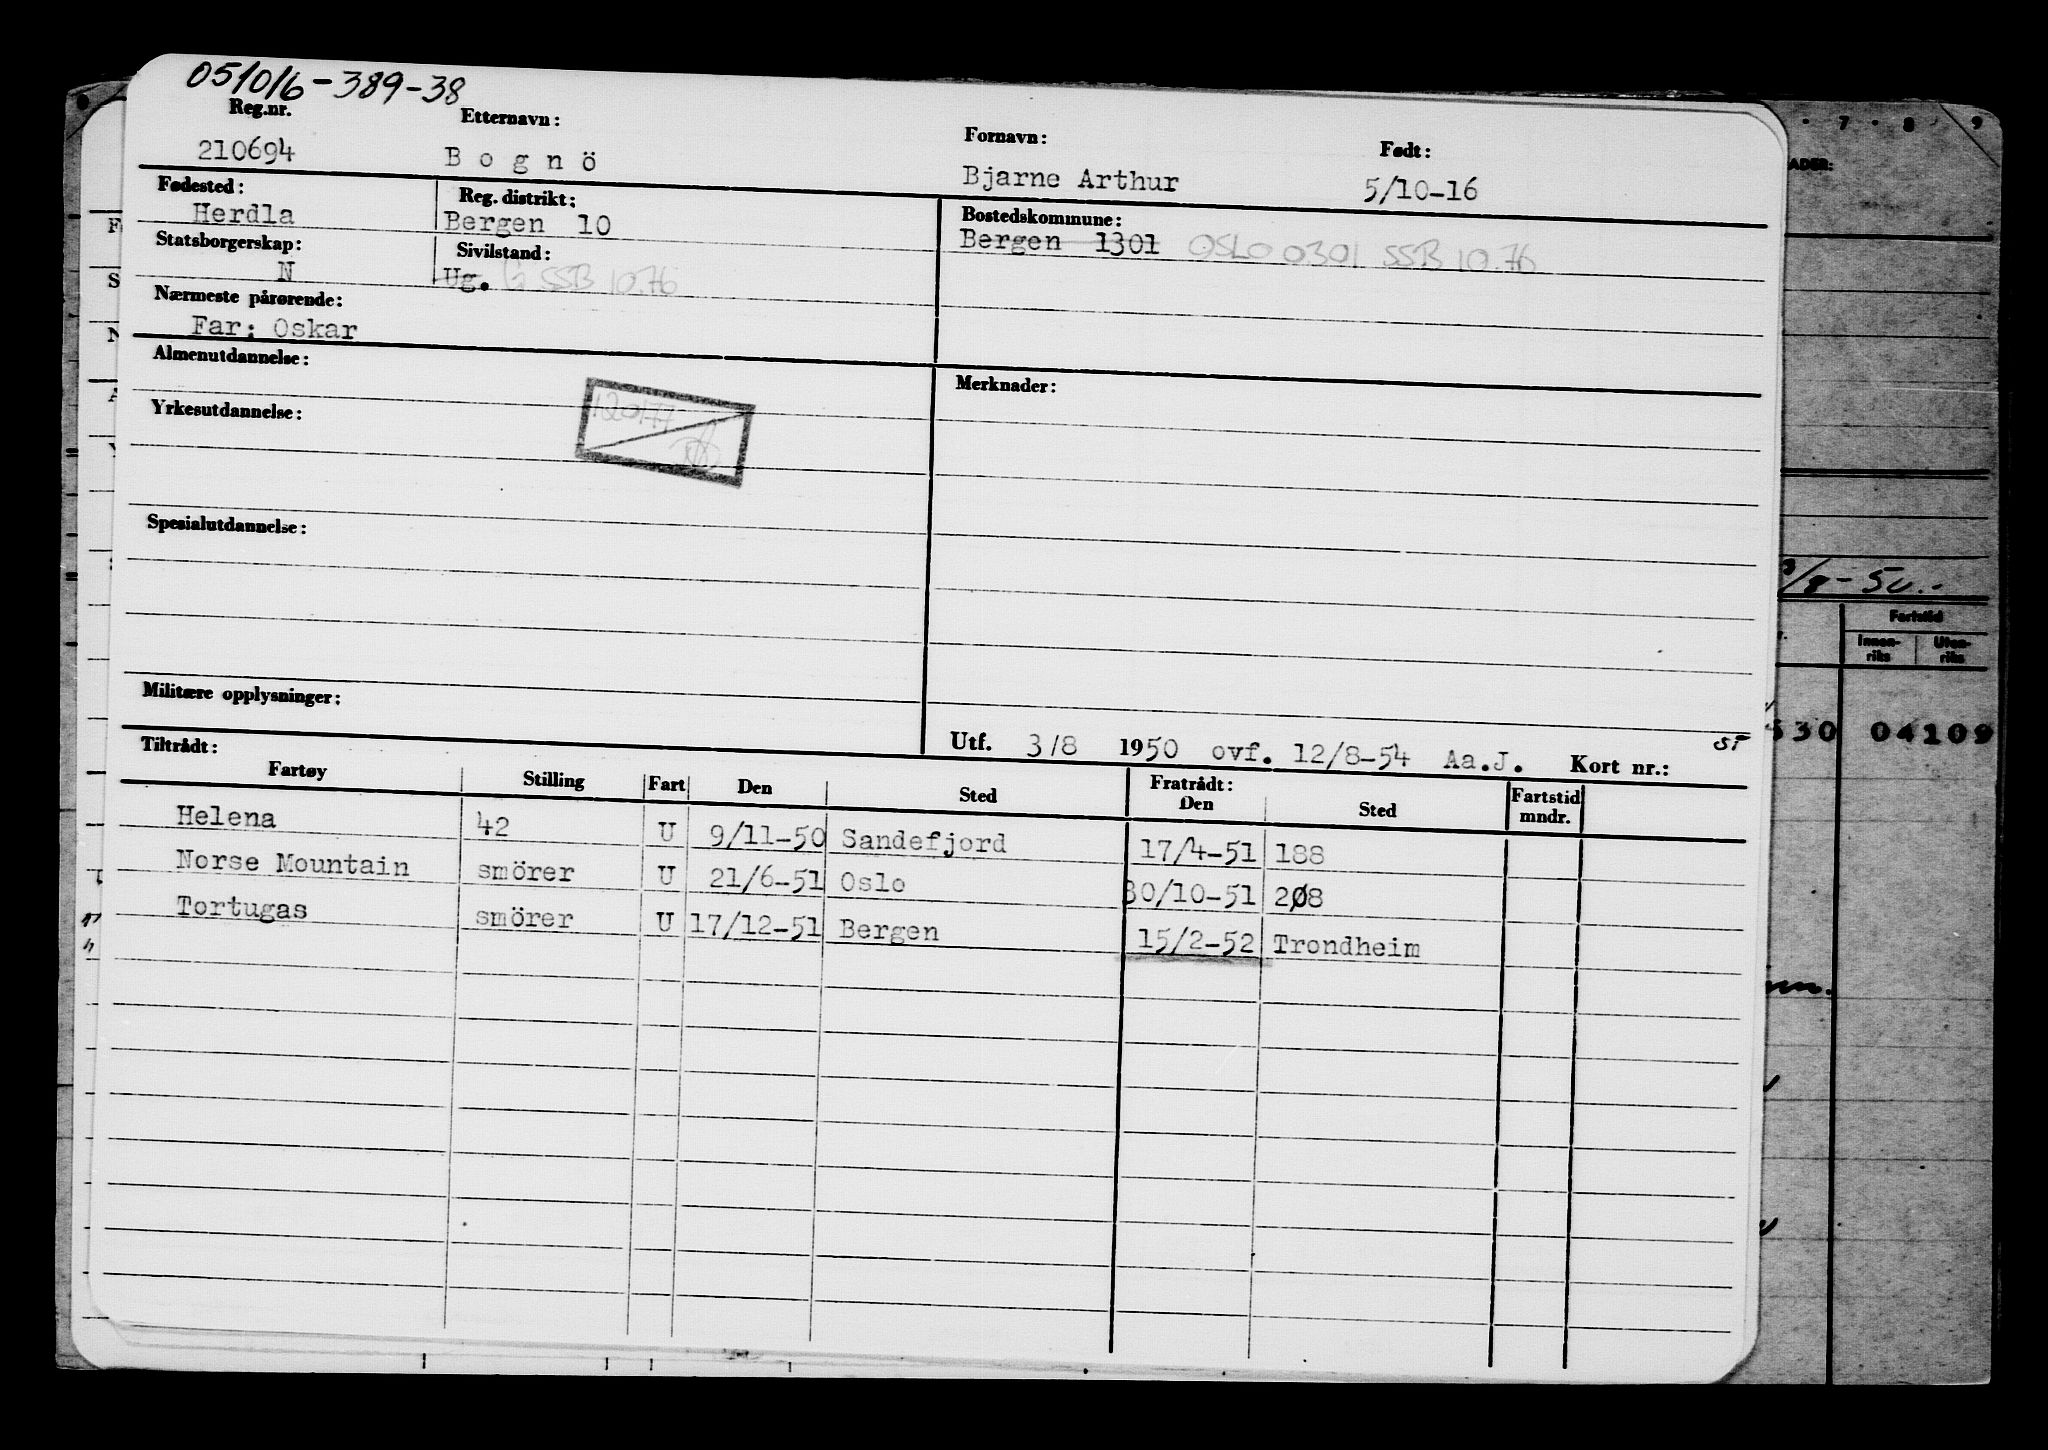 051016-389-38
Reg.nr. Etternavn: Fornavn: Født:
210694 Bognö Bjarne Arthur 5/10-16
Fødested: Reg. distrikt: Bostedskommune:
Herdla Bergen 10 Bergen 1301 OSLO 0301 SSB 10.76
Statsborgerskap: Sivilstand:
N Ug. G SSB 10.76
Nærmeste pårørende:
Far: Oskar
Almenutdannelse: Merknader:
Yrkesutdannelse:
120177
Spesialutdannelse:
Militære opplysninger:
Utf. 3/8 1950 ovf. 12/8-54 Aa.J. Kort nr.:
Tiltrådt: Fratrådt:
Fartøy Stilling Fart Den Sted Den Sted Fartstid mndr.
Helena 42 U 9/11-50 Sandefjord 17/4-51 188
Norse Mountain smörer U 21/6-51 Oslo 30/10-51 208
Tortugas smörer U 17/12-51 Bergen 15/2-52 Trondheim
7 8 9
/8-50.-
Fartstid
Innen-riks Uten-riks
530 04109